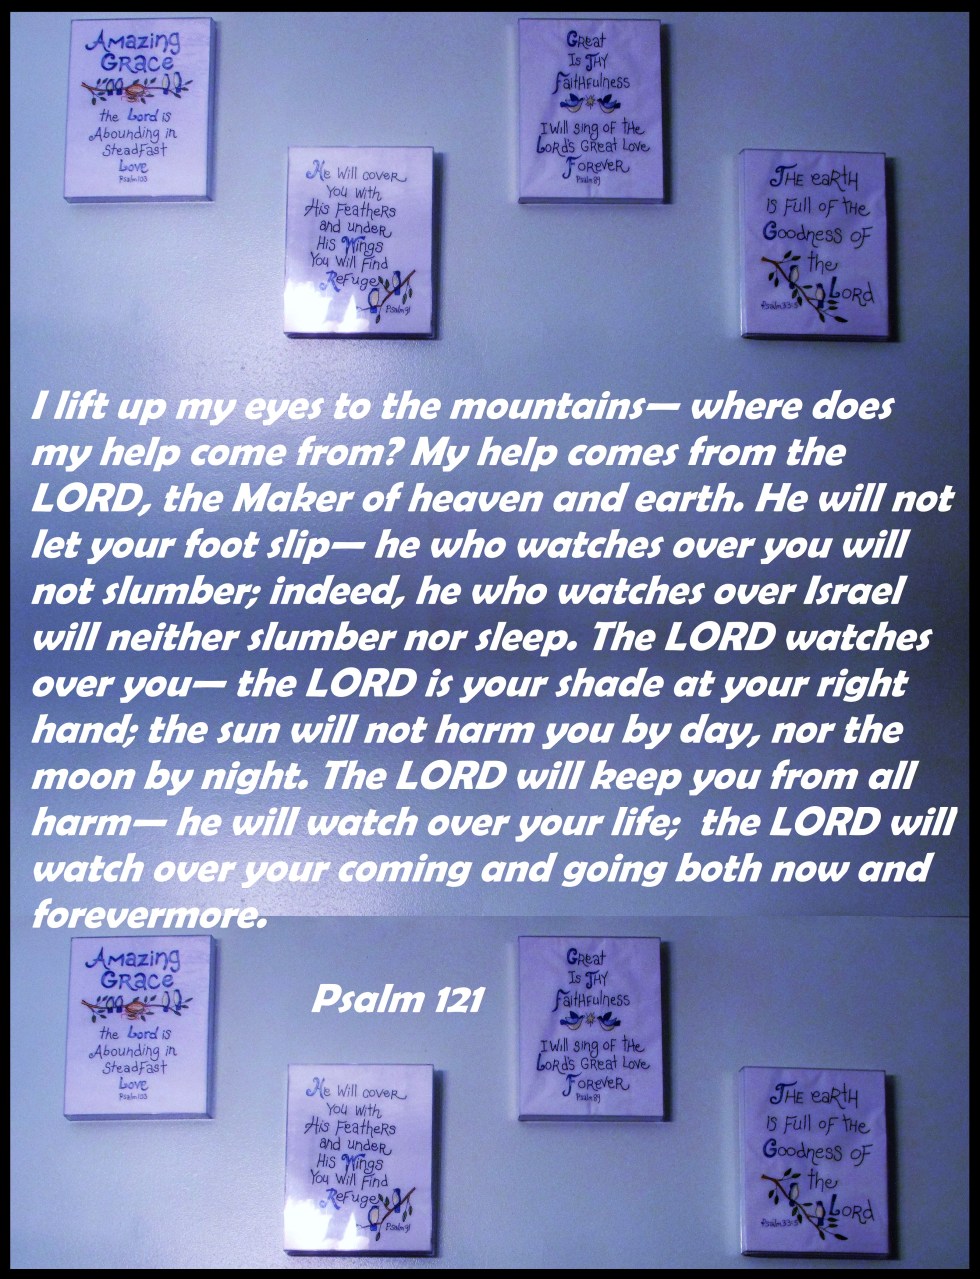 Amazing
Grace
the Lord is
Abounding in
Steadfast
Love
Psalm 103
He Will cover
You With
His Feathers
and under
His Wings
You Will Find
Refuge
Psalm 91
Great
Is Thy
Faithfulness
I Will sing of the
Lord's Great Love
Forever
Psalm 89
The earth
is Full of the
Goodness of
the
Lord
Psalm 33:5
I lift up my eyes to the mountains— where does
my help come from? My help comes from the
LORD, the Maker of heaven and earth. He will not
let your foot slip— he who watches over you will
not slumber; indeed, he who watches over Israel
will neither slumber nor sleep. The LORD watches
over you— the LORD is your shade at your right
hand; the sun will not harm you by day, nor the
moon by night. The LORD will keep you from all
harm— he will watch over your life;  the LORD will
watch over your coming and going both now and
forevermore.
Psalm 121
Amazing
Grace
the Lord is
Abounding in
Steadfast
Love
Psalm 103
He Will cover
You With
His Feathers
and under
His Wings
You Will Find
Refuge
Psalm 91
Great
Is Thy
Faithfulness
I Will sing of the
Lord's Great Love
Forever
Psalm 89
The earth
is Full of the
Goodness of
the
Lord
Psalm 33:5